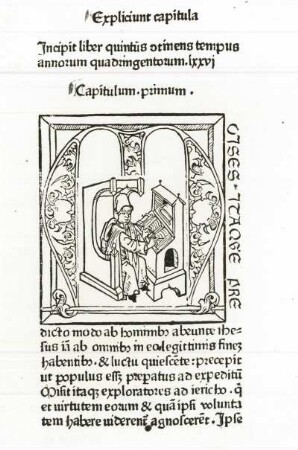 Expliciunt capitula
Incipit liber quintus ↄtinens tempus
annorum quadringentorum.lxxvj
Capitulum.primum.
M
OYSES·ITAQVE PRE
dicto modo ab hominibꝰ abeunte Ihe-
sus iā ab omnibꝰ in eo legittimis finē
habentibꝰ. & luctu quiescēte: precepit
ut populus esset pꝛepatus ad expeditiōē
Misit itaqꝫ exploratores ad iericho. q̄
et virtutem eorum & quā ipsi volunta
tem habere viderent̄ agnoscerēt. Ipse